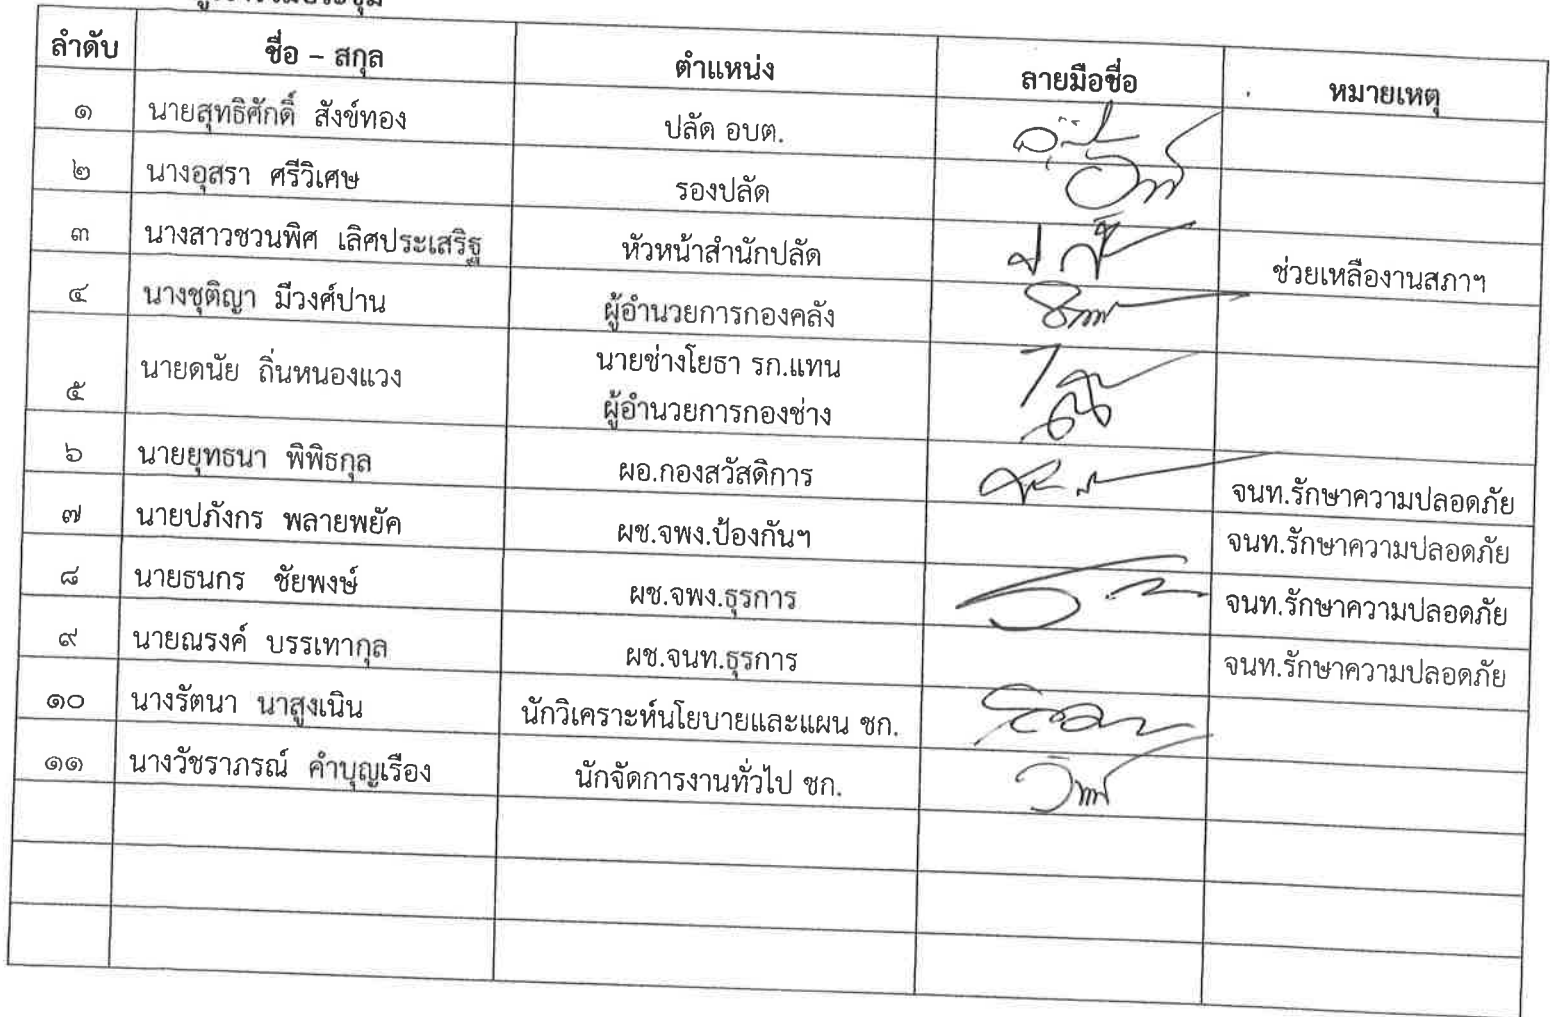 ลำดับ ชื่อ – สกุล ตำแหน่ง ลายมือชื่อ หมายเหตุ
๑ นายสุทธิศักดิ์ สังข์ทอง ปลัด อบต.
๒ นางอุสรา ศรีวิเศษ รองปลัด
๓ นางสาวชวนพิศ เลิศประเสริฐ หัวหน้าสำนักปลัด ช่วยเหลืองานสภาฯ
๔ นางชุติญา มีวงศ์ปาน ผู้อำนวยการกองคลัง
๕ นายดนัย ถิ่นหนองแวง นายช่างโยธา รก.แทน
ผู้อำนวยการกองช่าง
๖ นายยุทธนา พิพิธกุล ผอ.กองสวัสดิการ จนท.รักษาความปลอดภัย
๗ นายปภังกร พลายพยัค ผช.จพง.ป้องกันฯ จนท.รักษาความปลอดภัย
๘ นายธนกร ชัยพงษ์ ผช.จพง.ธุรการ จนท.รักษาความปลอดภัย
๙ นายณรงค์ บรรเทากุล ผช.จนท.ธุรการ จนท.รักษาความปลอดภัย
๑๐ นางรัตนา นาสูงเนิน นักวิเคราะห์นโยบายและแผน ชก.
๑๑ นางวัชราภรณ์ คำบุญเรือง นักจัดการงานทั่วไป ชก.